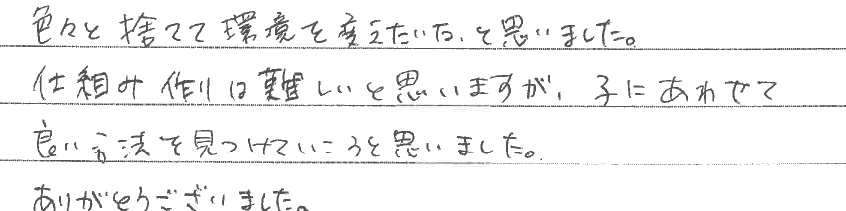 色々と捨てて環境を変えたいな、と思いました。
仕組み作りは難しいと思いますが、子にあわせて
良い方法を見つけていこうと思いました。
ありがとうございました。